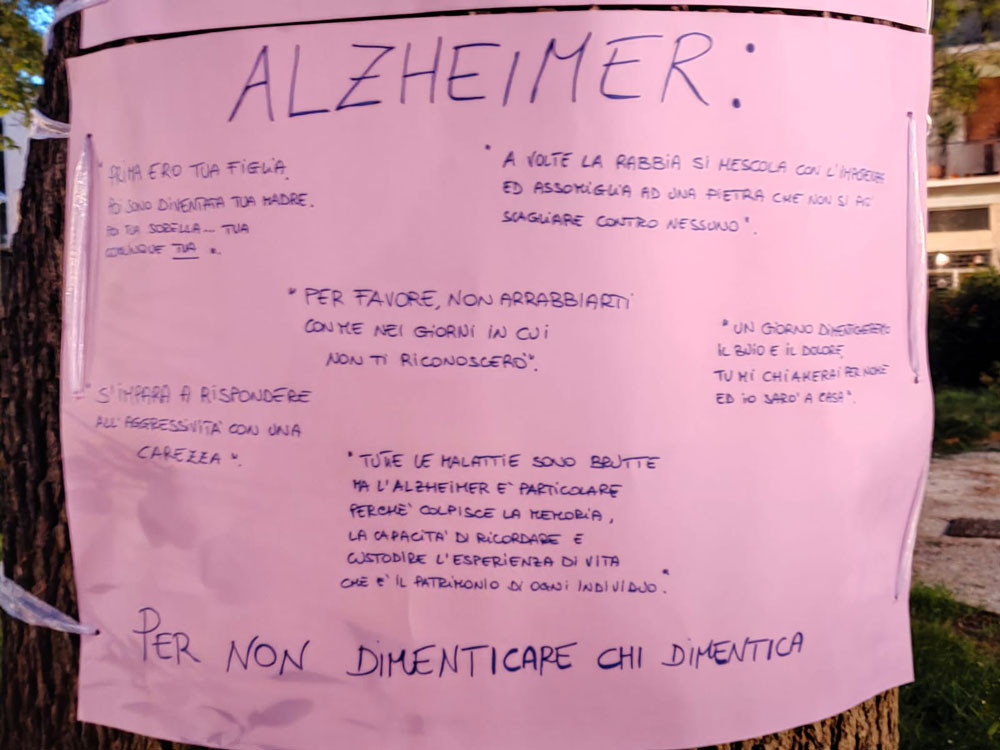 ALZHEIMER:
"PRIMA ERO TUA FIGLIA.
POI SONO DIVENTATA TUA MADRE.
POI TUA SORELLA... TUA
COMUNQUE TUA".
"A VOLTE LA RABBIA SI MESCOLA CON
ED ASSOMIGLIA AD UNA PIETRA CHE NON SI
SCAGLIARE CONTRO NESSUNO".
"PER FAVORE, NON ARRABBIARTI
CON ME NEI GIORNI IN CUI
NON TI RICONOSCERÒ".
"UN GIORNO DIMENTICHEREMO
IL BUIO E IL DOLORE,
TU MI CHIAMERAI PER NOME
ED IO SARO' A CASA".
"S'IMPARA A RISPONDERE
ALL'AGGRESSIVITA' CON UNA
CAREZZA".
"TUTTE LE MALATTIE SONO BRUTTE
MA L'ALZHEIMER E' PARTICOLARE
PERCHE' COLPISCE LA MEMORIA,
LA CAPACITA' DI RICORDARE E
CUSTODIRE L'ESPERIENZA DI VITA
CHE E' IL PATRIMONIO DI OGNI INDIVIDUO".
PER NON DIMENTICARE CHI DIMENTICA